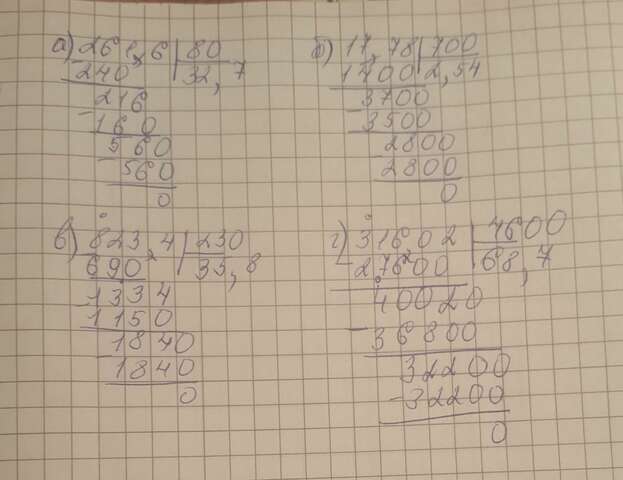 а) 261,6 | 80
240 32,7
216
160
560
560
0
б) 17,78 | 700
1400 2,54
3700
3500
2800
2800
0
в) 823,4 | 230
690 35,8
1334
1150
1840
1840
0
г) 316,02 | 4600
27600 68,7
40020
36800
32200
32200
0